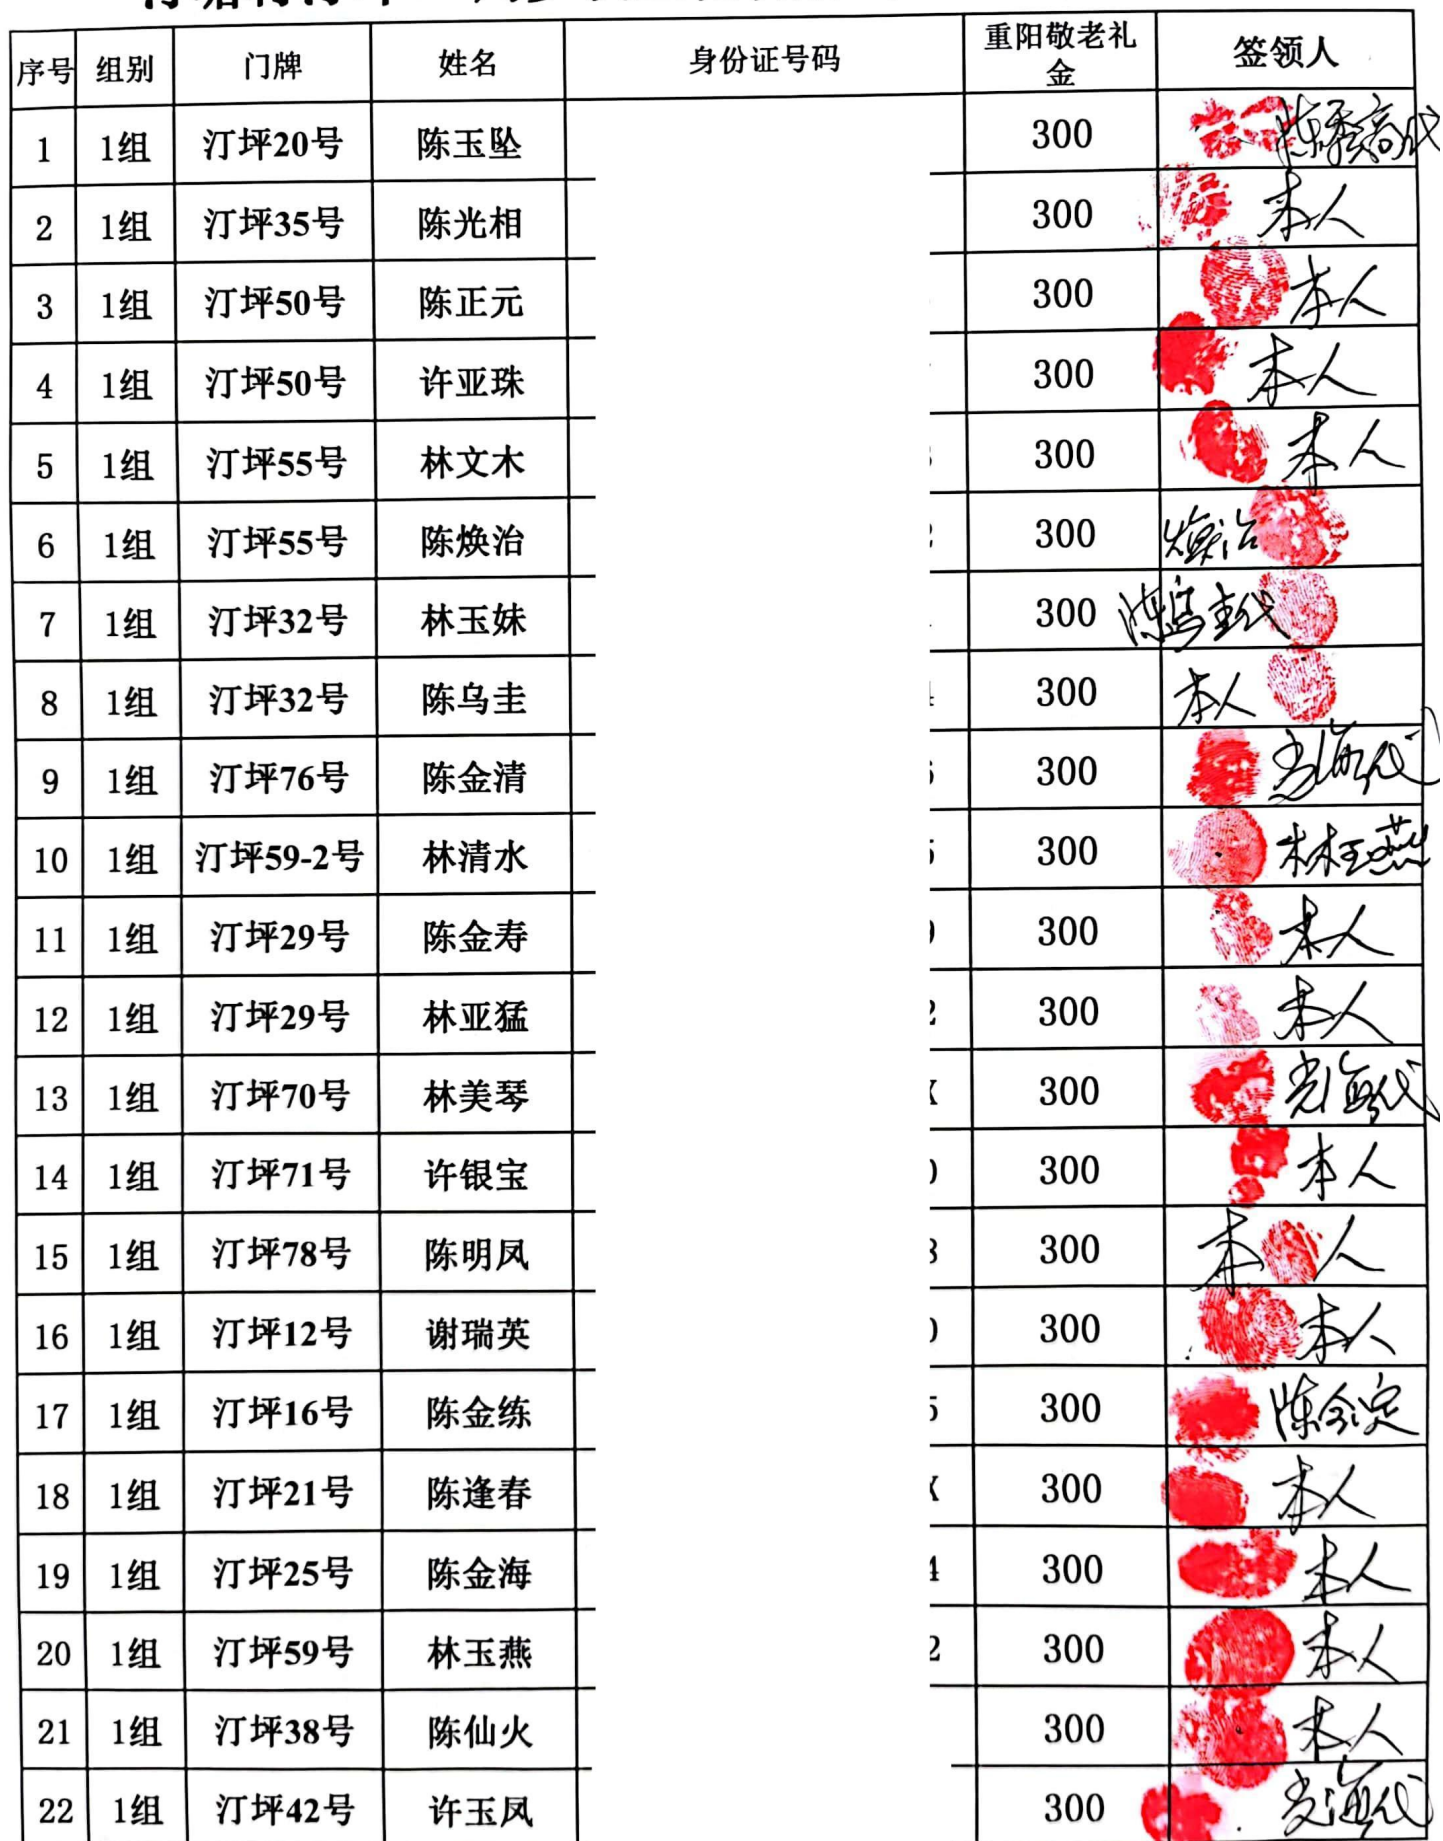 序号 组别 门牌 姓名 身份证号码 重阳敬老礼金 签领人
1 1组 汀坪20号 陈玉坠 300
2 1组 汀坪35号 陈光相 300 本人
3 1组 汀坪50号 陈正元 300 本人
4 1组 汀坪50号 许亚珠 300 本人
5 1组 汀坪55号 林文木 300 本人
6 1组 汀坪55号 陈焕治 300 焕治
7 1组 汀坪32号 林玉妹 300 陈乌圭代
8 1组 汀坪32号 陈乌圭 300 本人
9 1组 汀坪76号 陈金清 300 光海代
10 1组 汀坪59-2号 林清水 300 林玉燕
11 1组 汀坪29号 陈金寿 300 本人
12 1组 汀坪29号 林亚猛 300 本人
13 1组 汀坪70号 林美琴 X 300 光海代
14 1组 汀坪71号 许银宝 300 本人
15 1组 汀坪78号 陈明凤 300 本人
16 1组 汀坪12号 谢瑞英 300 本人
17 1组 汀坪16号 陈金练 300 陈金定
18 1组 汀坪21号 陈逢春 X 300 本人
19 1组 汀坪25号 陈金海 4 300 本人
20 1组 汀坪59号 林玉燕 2 300 本人
21 1组 汀坪38号 陈仙火 300 本人
22 1组 汀坪42号 许玉凤 300 光海代